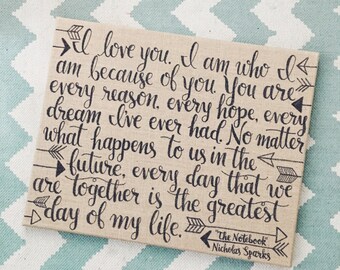 I love you. I am who I
am because of you. You are
every reason, every hope, every
dream I've ever had. No matter
what happens to us in the
future, every day that we
are together is the greatest
day of my life.
"the Notebook"
Nicholas Sparks